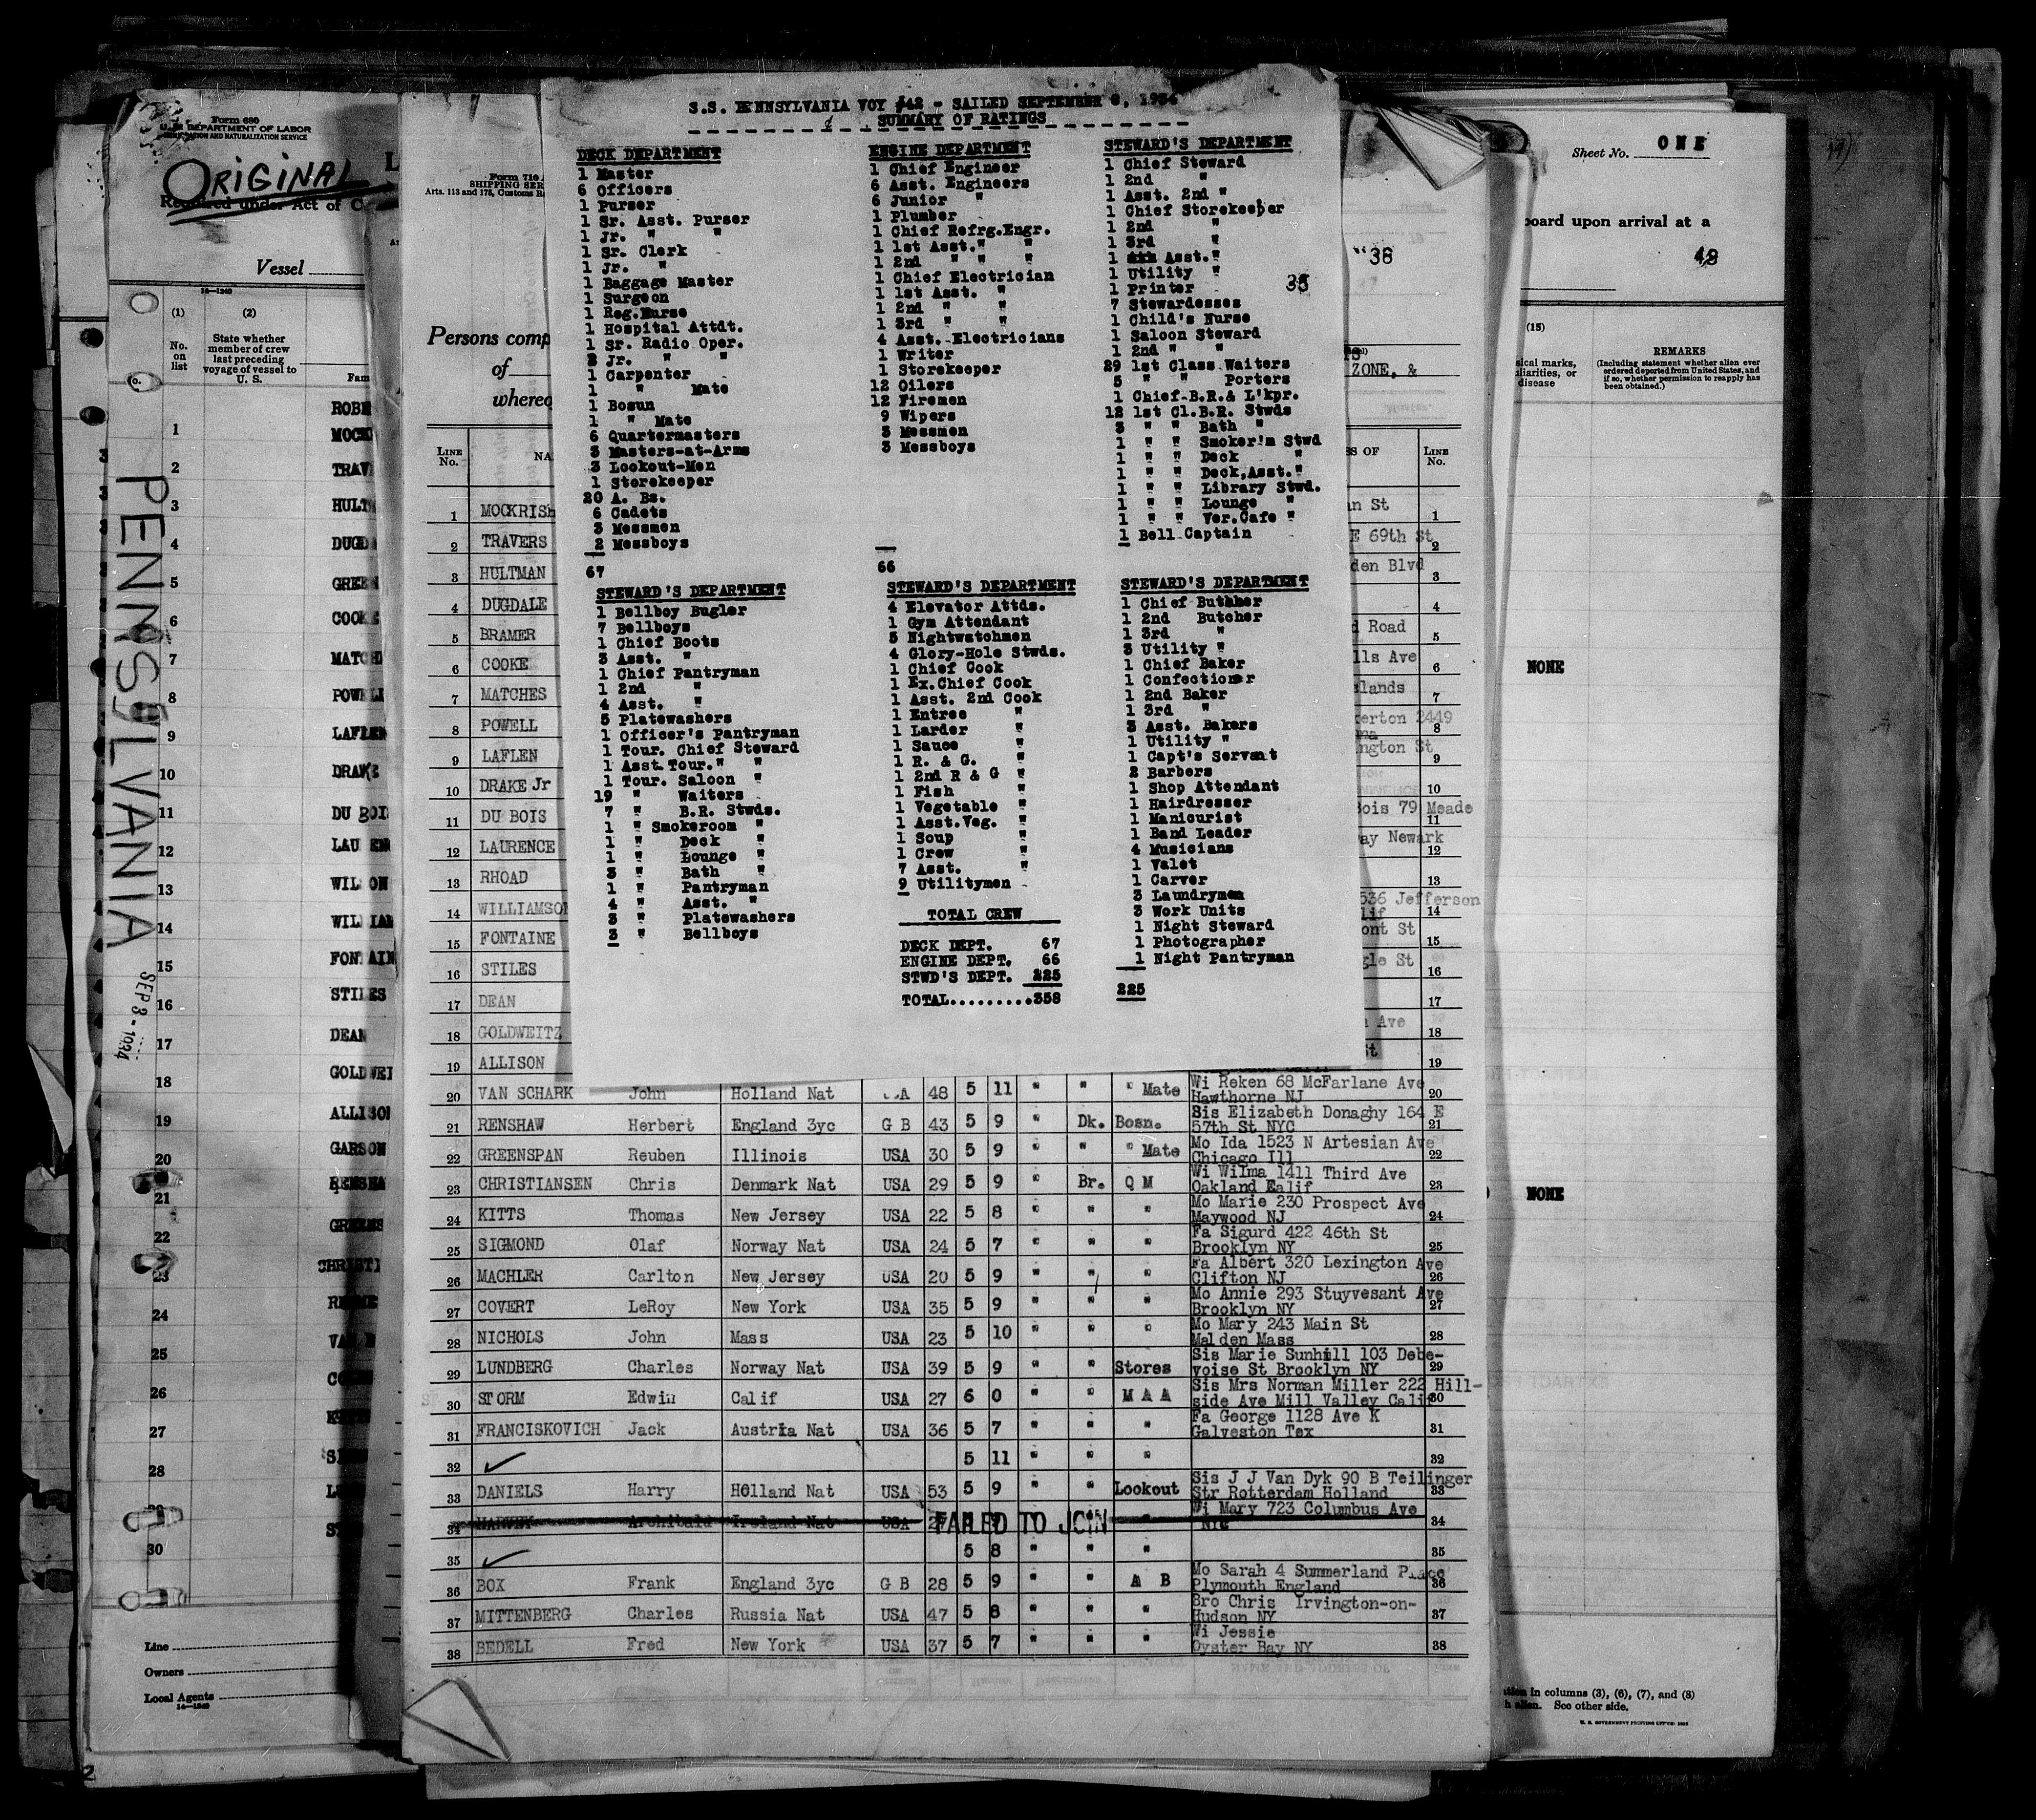 S.S. PENNSYLVANIA VOY #42 - SAILED SEPTEMBER 8, 1934
SUMMARY OF RATINGS
DECK DEPARTMENT
1 Master
6 Officers
1 Purser
1 Sr. Asst. Purser
1 Jr. " "
1 Sr. Clerk
1 Jr. "
1 Baggage Master
1 Surgeon
1 Reg.Nurse
1 Hospital Attdt.
1 Sr. Radio Oper.
2 Jr. " "
1 Carpenter
1 " Mate
1 Bosun
1 " Mate
6 Quartermasters
3 Masters-at-Arms
3 Lookout-Men
1 Storekeeper
20 A. Bs.
6 Cadets
3 Messmen
2 Messboys
67
ENGINE DEPARTMENT
1 Chief Engineer
6 Asst. Engineers
6 Junior "
1 Plumber
1 Chief Refrg.Engr.
1 1st Asst." "
1 2nd " " "
1 Chief Electrician
1 1st Asst. "
1 2nd " "
1 3rd " "
4 Asst. Electricians
1 Writer
1 Storekeeper
12 Oilers
12 Firemen
9 Wipers
3 Messmen
3 Messboys
66
STEWARD'S DEPARTMENT
1 Chief Steward
1 2nd "
1 Asst. 2nd "
1 Chief Storekeeper
1 2nd "
1 3rd "
1 Asst. "
1 Utility "
1 Printer
7 Stewardesses
1 Child's Nurse
1 Saloon Steward
1 2nd " "
29 1st Class Waiters
5 " " Porters
1 Chief B.R.& L'kpr.
12 1st Cl.B.R. Stwds
3 " " Bath "
1 " " Smoker'm Stwd
1 " " Deck "
1 " " Deck,Asst."
1 " " Library Stwd.
1 " " Lounge "
1 " " Ver.Cafe "
1 Bell Captain
STEWARD'S DEPARTMENT
1 Bellboy Bugler
7 Bellboys
1 Chief Boots
3 Asst. "
1 Chief Pantryman
1 2nd "
4 Asst. "
5 Platewashers
1 Officer's Pantryman
1 Tour. Chief Steward
1 Asst.Tour." "
1 Tour. Saloon "
19 " Waiters
7 " B.R. Stwds.
1 " Smokeroom "
1 " Deck "
1 " Lounge "
3 " Bath "
1 " Pantryman
4 " Asst. "
3 " Platewashers
3 " Bellboys
STEWARD'S DEPARTMENT
4 Elevator Attds.
1 Gym Attendant
5 Nightwatchmen
4 Glory-Hole Stwds.
1 Chief Cook
1 Ex.Chief Cook
1 Asst. 2nd Cook
1 Entree "
1 Larder "
1 Sauce "
1 R. & G. "
1 2nd R & G "
1 Fish "
1 Vegetable "
1 Asst.Veg. "
1 Soup "
1 Crew "
7 Asst. "
9 Utilitymen
TOTAL CREW
DECK DEPT. 67
ENGINE DEPT. 66
STWD'S DEPT. 225
TOTAL.........358
STEWARD'S DEPARTMENT
1 Chief Butcher
1 2nd Butcher
1 3rd "
3 Utility "
1 Chief Baker
1 Confectioner
1 2nd Baker
1 3rd "
3 Asst. Bakers
1 Utility "
1 Capt's Servant
2 Barbers
1 Shop Attendant
1 Hairdresser
1 Manicurist
1 Band Leader
4 Musicians
1 Valet
1 Carver
3 Laundrymen
3 Work Units
1 Night Steward
1 Photographer
1 Night Pantryman
225
Form 680
U. S. DEPARTMENT OF LABOR
IMMIGRATION AND NATURALIZATION SERVICE
ORIGINAL
Required under Act of
Vessel
14—1240
(1)
No. on list
(2)
State whether member of crew last preceding voyage of vessel to U. S.
PENNSYLVANIA
SEP 8 - 1934
1 MOCK
2 TRAV
3 HULT
4 DUGD
5 GREEN
6 COOKE
7 MATCH
8 POWELL
9 LAFLEN
10 DRAKE
11 DU BOIS
12 LAU EN
13 WILSON
14 WILLIAM
15 FONTAIN
16 STILES
17 DEAN
18 GOLDWEI
19 ALLISON
20 GARSON
21 RENSHA
22 GREENS
23 CHRISTI
24
25
26
27
28
29
30
Line
Owners
Local Agents
14—1240
Form 710
SHIPPING SER
Arts. 113 and 175, Customs R
Persons comp
of
where
ZONE, &
"38
35
LINE No.
NA
SS OF
LINE No.
1 MOCKRISH n St 1
2 TRAVERS E 69th St 2
3 HULTMAN den Blvd 3
4 DUGDALE 4
5 BRAMER d Road 5
6 COOKE lls Ave 6
7 MATCHES lands 7
8 POWELL erton 2449 8
9 LAFLEN ington St 9
10 DRAKE Jr 10
11 DU BOIS Bois 79 Meade 11
12 LAURENCE ay Newark 12
13 RHOAD 13
14 WILLIAMSON 536 Jefferson lif 14
15 FONTAINE ont St 15
16 STILES gle St 16
17 DEAN 17
18 GOLDWEITZ Ave 18
19 ALLISON St 19
20 VAN SCHARK John Holland Nat 48 5 11 " " " Mate Wi Reken 68 McFarlane Ave Hawthorne NJ 20
21 RENSHAW Herbert England 3yc G B 43 5 9 " Dk. Bosn. Sis Elizabeth Donaghy 164 E 57th St NYC 21
22 GREENSPAN Reuben Illinois USA 30 5 9 " " " Mate Mo Ida 1523 N Artesian Ave Chicago Ill 22
23 CHRISTIANSEN Chris Denmark Nat USA 29 5 9 " Br. Q M Wi Wilma 1411 Third Ave Oakland Ealif 23
24 KITTS Thomas New Jersey USA 22 5 8 " " " Mo Marie 230 Prospect Ave Maywood NJ 24
25 SIGMOND Olaf Norway Nat USA 24 5 7 " " " Fa Sigurd 422 46th St Brooklyn NY 25
26 MACHLER Carlton New Jersey USA 20 5 9 " " " Fa Albert 320 Lexington Ave Clifton NJ 26
27 COVERT LeRoy New York USA 35 5 9 " " " Mo Annie 293 Stuyvesant Ave Brooklyn NY 27
28 NICHOLS John Mass USA 23 5 10 " " " Mo Mary 243 Main St Malden Mass 28
29 LUNDBERG Charles Norway Nat USA 39 5 9 " " Stores Sis Marie Sunhill 103 Debe-voise St Brooklyn NY 29
30 STORM Edwin Calif USA 27 6 0 " " M A A Sis Mrs Norman Miller 222 Hill-side Ave Mill Valley Calif 30
31 FRANCISKOVICH Jack Austria Nat USA 36 5 7 " " " Fa George 1128 Ave K Galveston Tex 31
32 ✓ 5 11 " " " 32
33 DANIELS Harry Holland Nat USA 53 5 9 " " Lookout Sis J J Van Dyk 90 B Teilinger Str Rotterdam Holland 33
34 HARVEY Archibald Ireland Nat USA FAILED TO JOIN Wi Mary 723 Columbus Ave NYC 34
35 ✓ 5 8 " " " 35
36 BOX Frank England 3yc G B 28 5 9 " " A B Mo Sarah 4 Summerland Place Plymouth England 36
37 MITTENBERG Charles Russia Nat USA 47 5 8 " " " Bro Chris Irvington-on-Hudson NY 37
38 BEDELL Fred New York USA 37 5 7 " " " Wi Jessie Oyster Bay NY 38
Sheet No. ONE
board upon arrival at a
(15)
sical marks, uliarities, or disease
REMARKS
(Including statement whether alien ever ordered deported from United States, and if so, whether permission to reapply has been obtained.)
NONE
NONE
in columns (3), (6), (7), and (8)
alien. See other side.
U. S. GOVERNMENT PRINTING OFFICE
2